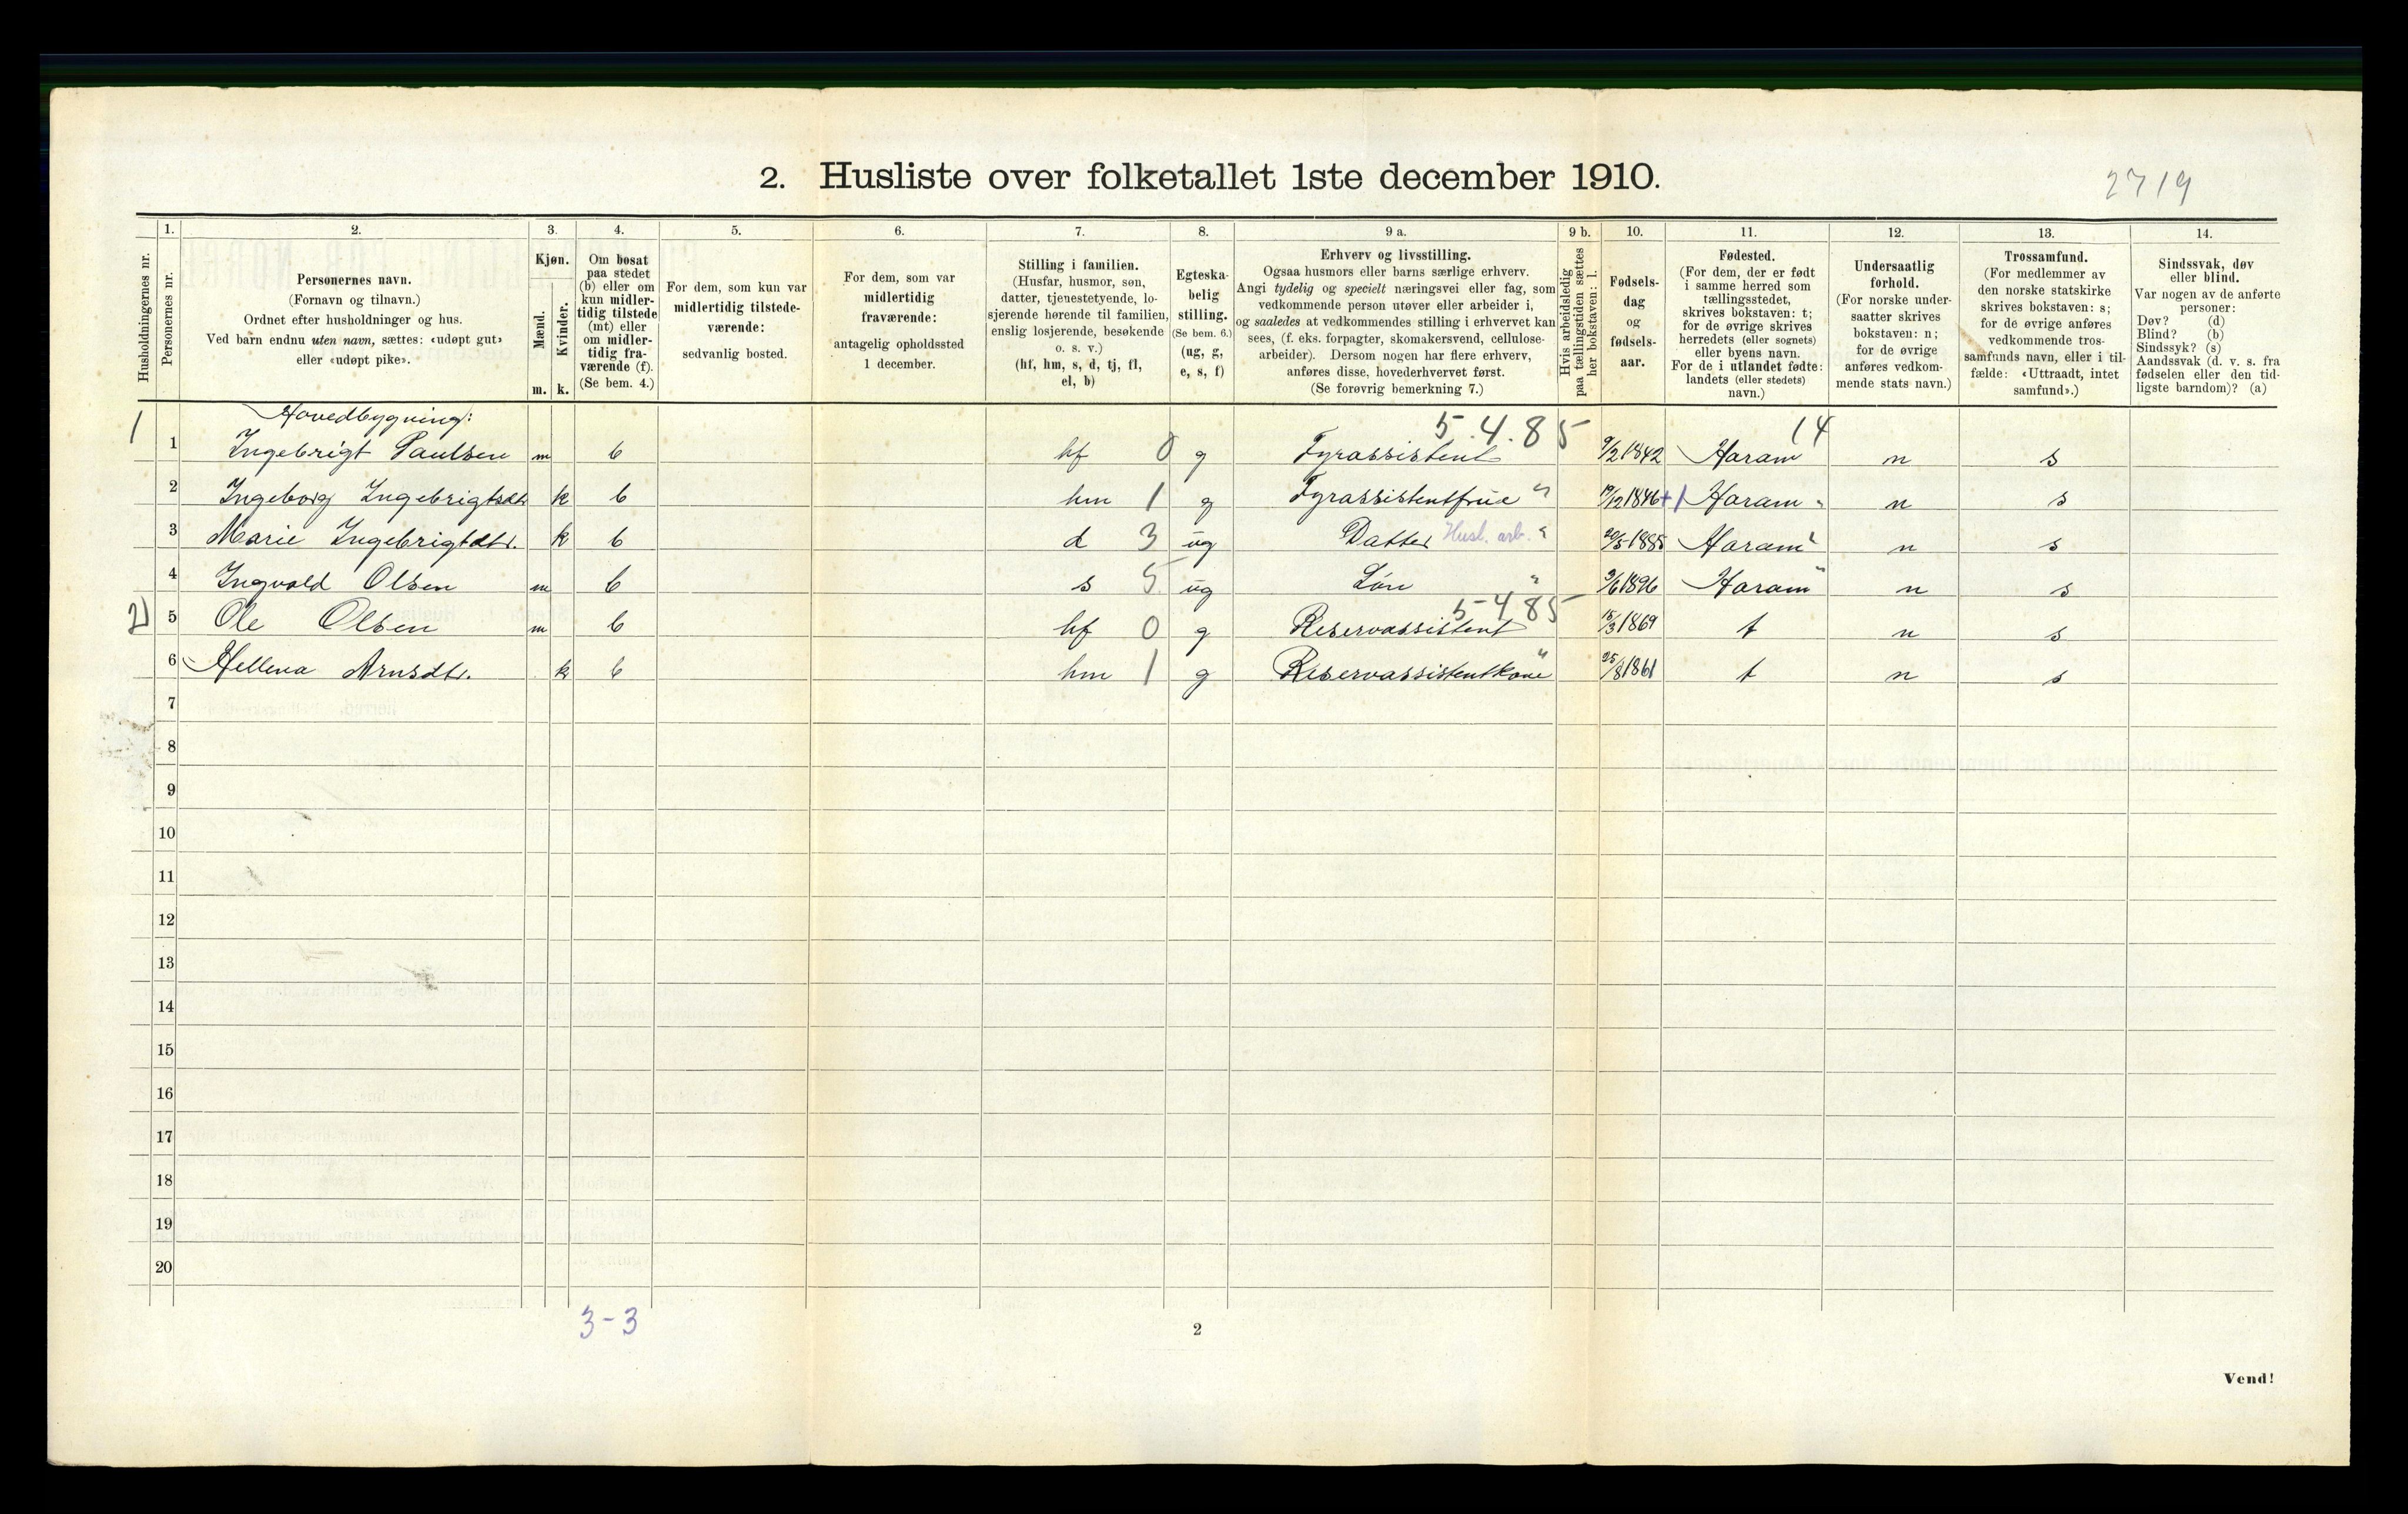 2. Husliste over folketallet 1ste december 1910.
2719
1. 2. 3. 4. 5. 6. 7. 8. 9 a. 9 b. 10. 11. 12. 13. 14.
Husholdningernes nr.
Personernes nr.
Personernes navn.
(Fornavn og tilnavn.)
Ordnet efter husholdninger og hus.
Ved barn endnu uten navn, sættes: «udøpt gut»
eller «udøpt pike».
Kjøn.
Mænd.
Kvinder.
m. k.
Om bosat
paa stedet
(b) eller om
kun midler-
tidig tilstede
(mt) eller
om midler-
tidig fra-
værende (f).
(Se bem. 4.)
For dem, som kun var
midlertidig tilstede-
værende:
sedvanlig bosted.
For dem, som var
midlertidig
fraværende:
antagelig opholdssted
1 december.
Stilling i familien.
(Husfar, husmor, søn,
datter, tjenestetyende, lo-
sjerende hørende til familien,
enslig losjerende, besøkende
o. s. v.)
(hf, hm, s, d, tj, fl,
el, b)
Egteska-
belig
stilling.
(Se bem. 6.)
(ug, g,
e, s, f)
Erhverv og livsstilling.
Ogsaa husmors eller barns særlige erhverv.
Angi tydelig og specielt næringsvei eller fag, som
vedkommende person utøver eller arbeider i,
og saaledes at vedkommendes stilling i erhvervet kan
sees, (f. eks. forpagter, skomakersvend, cellulose-
arbeider). Dersom nogen har flere erhverv,
anføres disse, hovederhvervet først.
(Se forøvrig bemerkning 7.)
Hvis arbeidsledig
paa tællingstiden sættes
her bokstaven: l.
Fødsels-
dag
og
fødsels-
aar.
Fødested.
(For dem, der er født
i samme herred som
tællingsstedet,
skrives bokstaven: t;
for de øvrige skrives
herredets (eller sognets)
eller byens navn.
For de i utlandet fødte:
landets (eller stedets)
navn.)
Undersaatlig
forhold.
(For norske under-
saatter skrives
bokstaven: n;
for de øvrige
anføres vedkom-
mende stats navn.)
Trossamfund.
(For medlemmer av
den norske statskirke
skrives bokstaven: s;
for de øvrige anføres
vedkommende tros-
samfunds navn, eller i til-
fælde: «Uttraadt, intet
samfund».)
Sindssvak, døv
eller blind.
Var nogen av de anførte
personer:
Døv? (d)
Blind? (b)
Sindssyk? (s)
Aandssvak (d. v. s. fra
fødselen eller den tid-
ligste barndom)? (a)
Hovedbygning:
5.4.85 14
1 1 Ingebrigt Paulsen m b hf 0 g Fyrassistent 9/2 1842 Haram n s
2 Ingeborg Ingebrigtsdtr k b hm 1 g Fyrassistentfrue " 19/12 1846 +1 Haram " n s
3 Marie Ingebrigtdtr. k b d 3 ug Datter Husl. arb. " 20/5 1885 Haram " n s
4 Ingvald Olsen m b s 5 ug Søn " 3/6 1896 Haram " n s
5-4.85
2) 5 Ole Olsen m b hf 0 g Reservassistent 15/3 1869 t n s
6 Hellena Arnsdtr. k b hm 1 g Reservassistentkone " 25/8 1861 t n s
7
8
9
10
11
12
13
14
15
16
17
18
19
20
3-3
2
Vend!